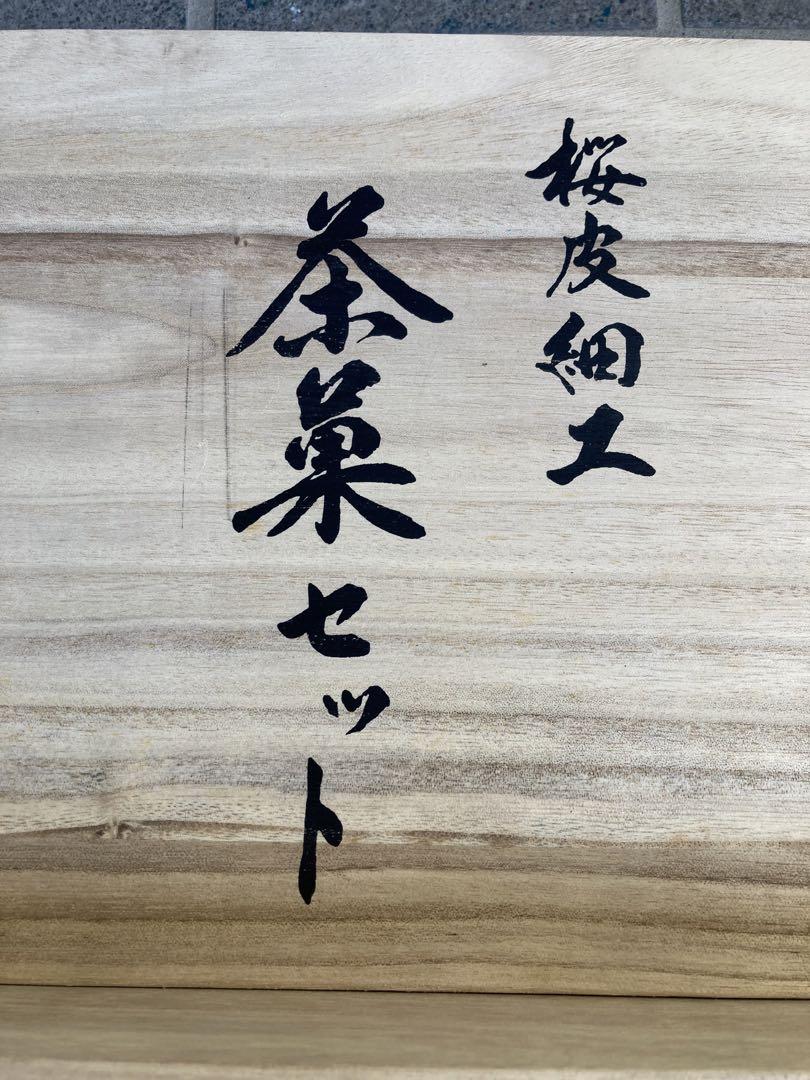 桜皮細工
茶菓セット